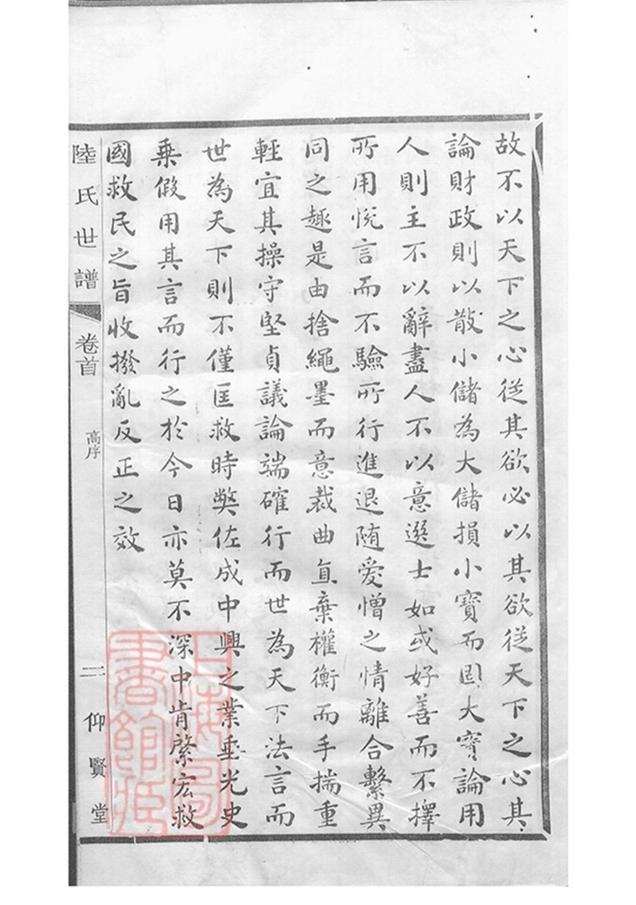 故不以天下之心從其欲必以其欲從天下之心其
論財政則以散小儲為大儲損小寶而固大寶論用
人則主不以辭盡人不以意選士如或好善而不擇
所用悅言而不驗所行進退随愛憎之情離合繫異
同之趣是由捨繩墨而意裁曲直棄權衡而手揣重
輕宜其操守堅貞議論端確行而世為天下法言而
世為天下則不僅匡救時弊佐成中興之業垂光史
乘假用其言而行之於今日亦莫不深中肯綮宏救
國救民之旨收撥亂反正之效
陸氏世譜 卷首 高序 二 仰賢堂
上海圖書館藏